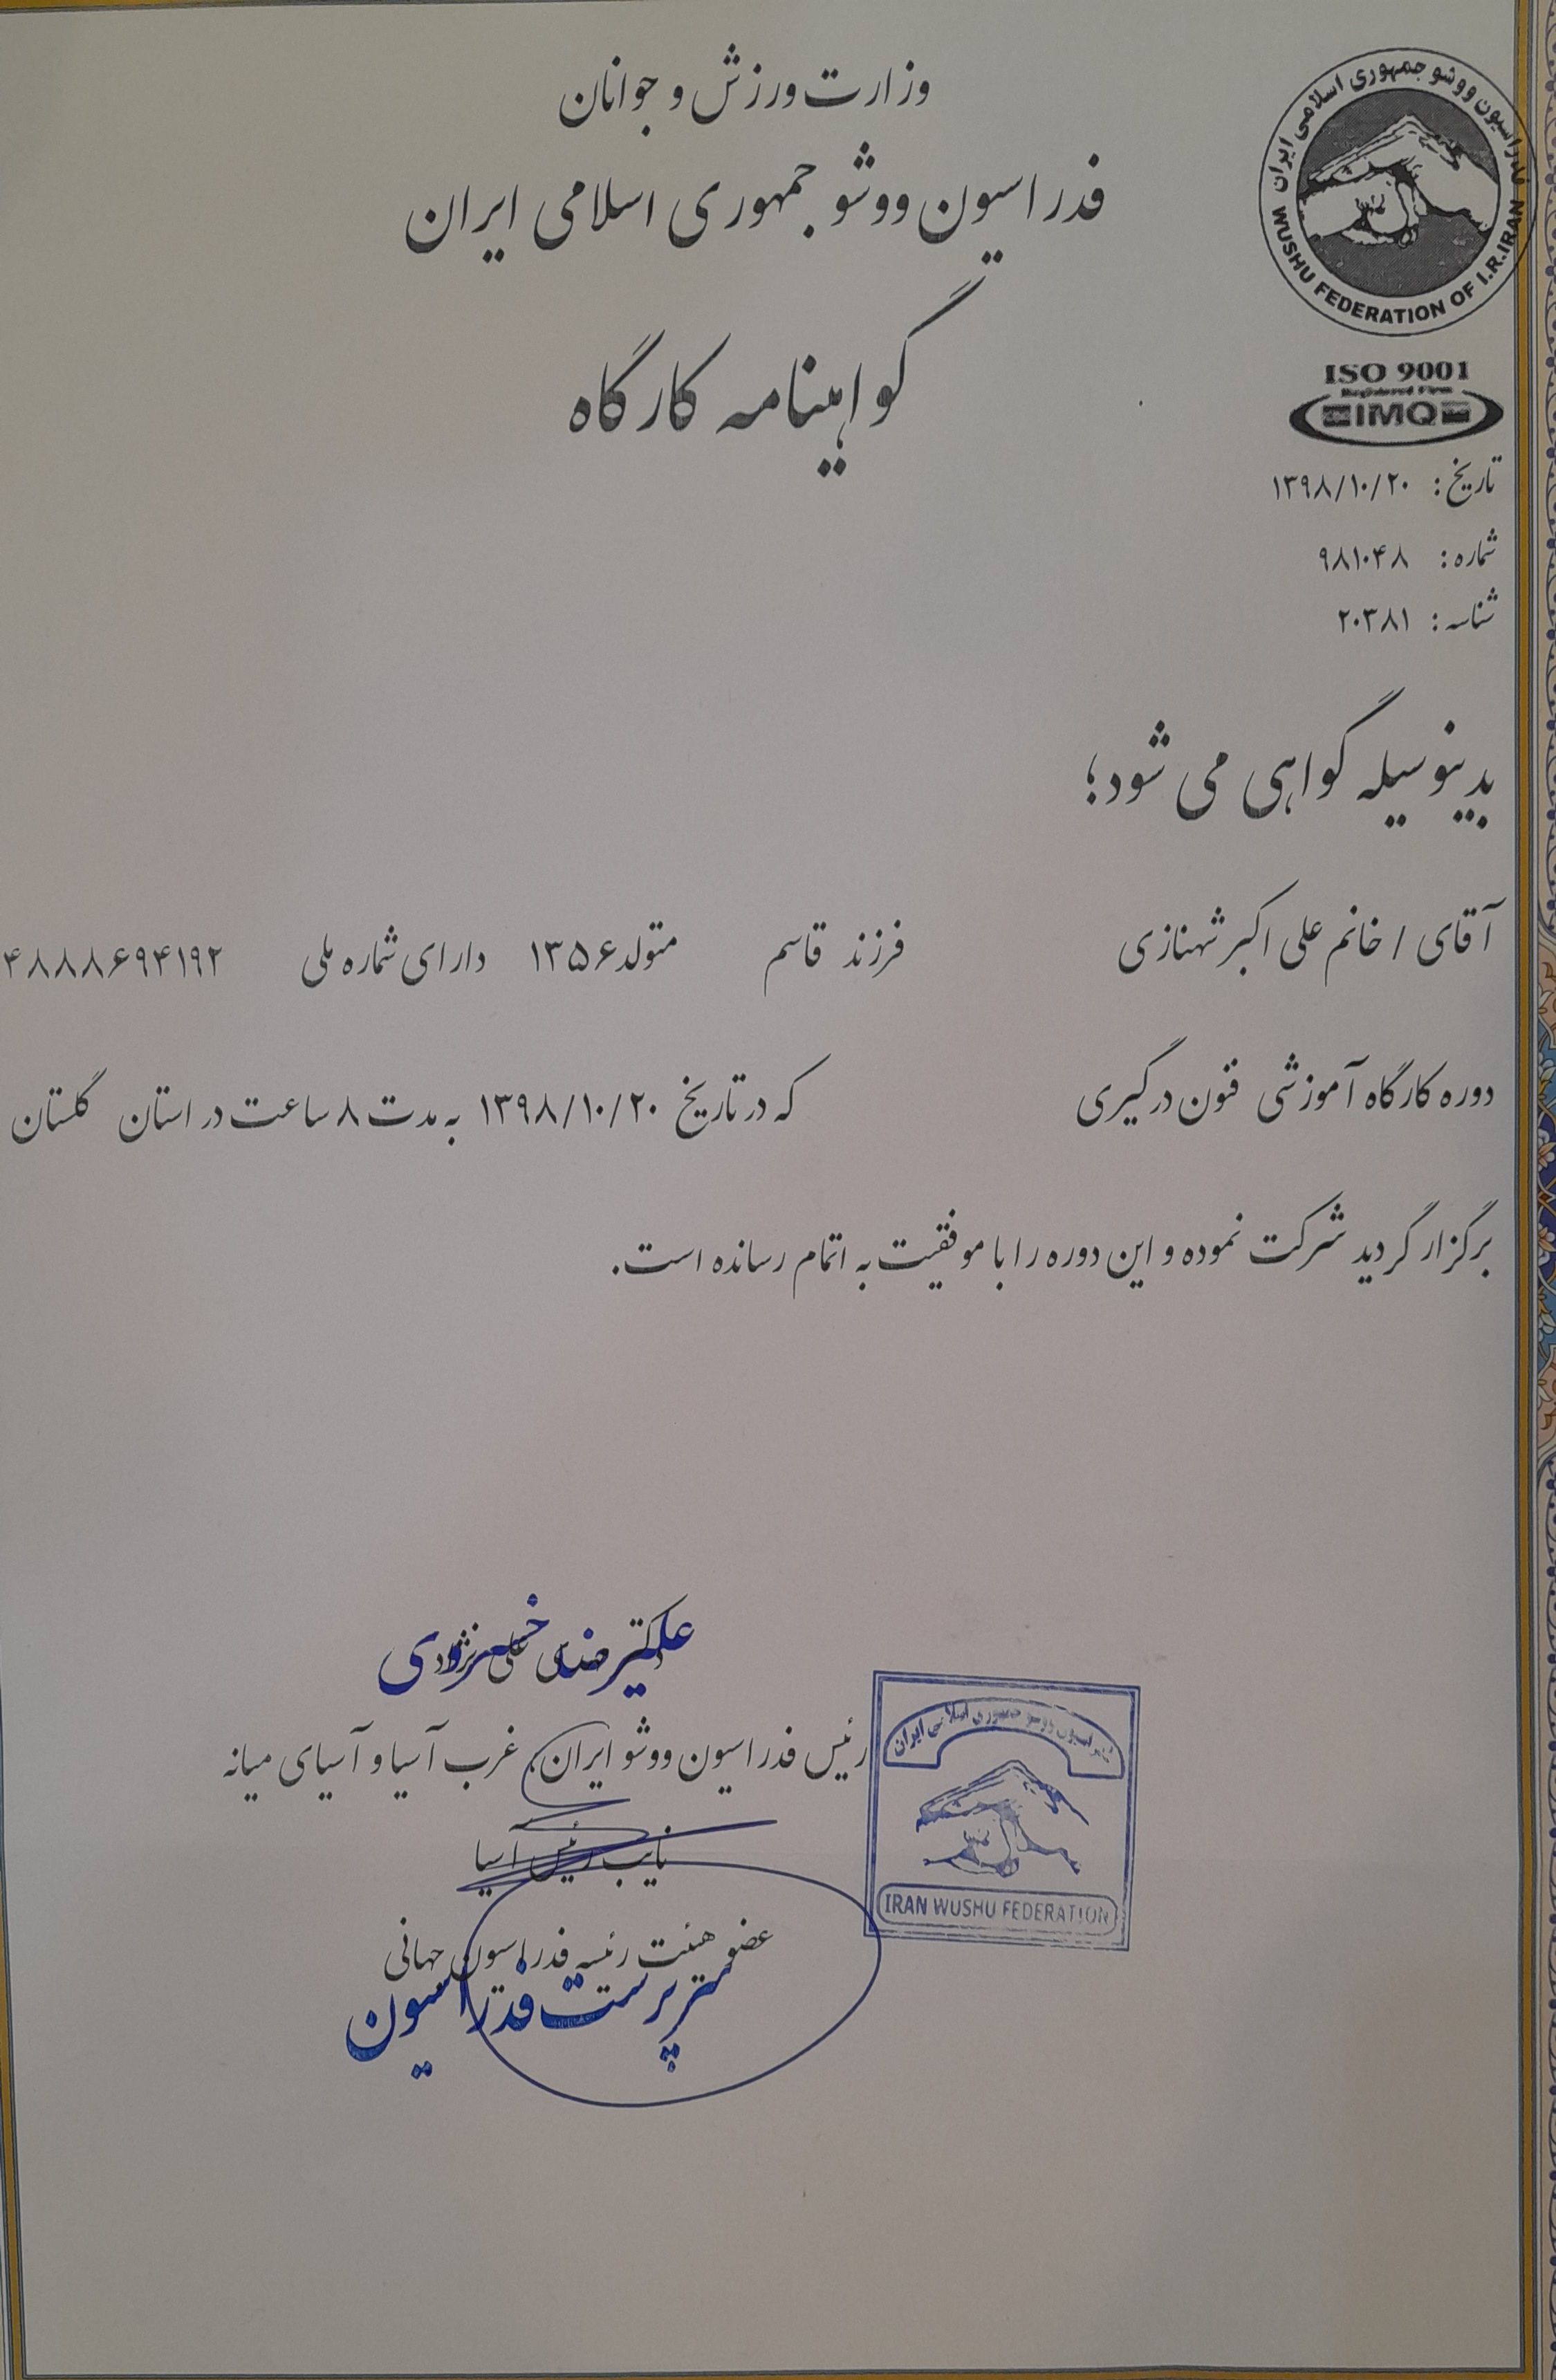 وزارت ورزش و جوانان
فدراسیون ووشو جمهوری اسلامی ایران
گواهینامه کارگاه
فدراسیون ووشو جمهوری اسلامی ایران
WUSHU FEDERATION OF I.R.IRAN
ISO 9001
Registered Firm
IMQ
تاریخ: ۱۳۹۸/۱۰/۲۰
شماره: ۹۸۱۰۴۸
شناسه: ۲۰۳۸۱
بدینوسیله گواهی می شود؛
آقای / خانم علی اکبر شهنازی فرزند قاسم متولد ۱۳۵۶ دارای شماره ملی ۴۸۸۸۶۹۴۱۹۲
دوره کارگاه آموزشی فنون درگیری که در تاریخ ۱۳۹۸/۱۰/۲۰ به مدت ۸ ساعت در استان گلستان
برگزار گردید شرکت نموده و این دوره را با موفقیت به اتمام رسانده است.
دکتر علی نژاد
خسروی
رئیس فدراسیون ووشو ایران، غرب آسیا و آسیای میانه
نایب رئیس آسیا
عضو هیئت رئیسه فدراسیون جهانی
سرپرست فدراسیون
فدراسیون ووشو جمهوری اسلامی ایران
IRAN WUSHU FEDERATION